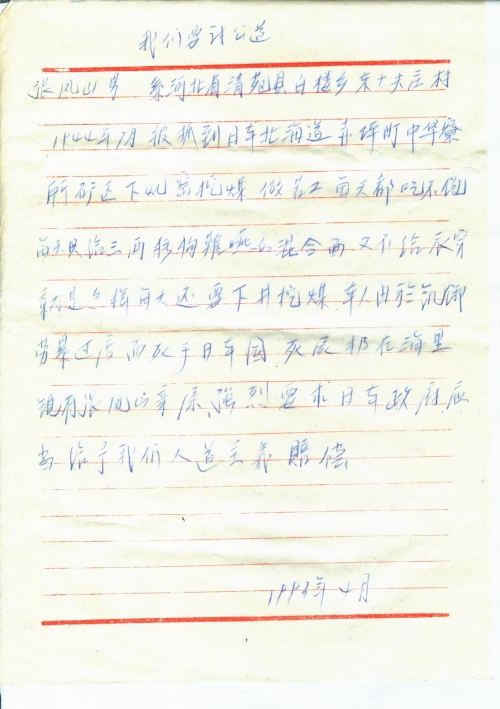 我们要讨公道
张凤山 男 系河北省清苑县白楼乡东大夫庄村
1944年7月被抓到日本北海道赤坪町中华寮
所矿区下火密挖煤 做苦工 每天都吃不饱
每天只给三两移狗难咽的混合面 又不给衣穿
就是这样每天还要下井挖煤 本人由于饥饿
劳累过度而死于日本国 死后扔在海里
现有张凤山亲属强烈要求日本政府应
当给予我们人道主义赔偿
1993年4月